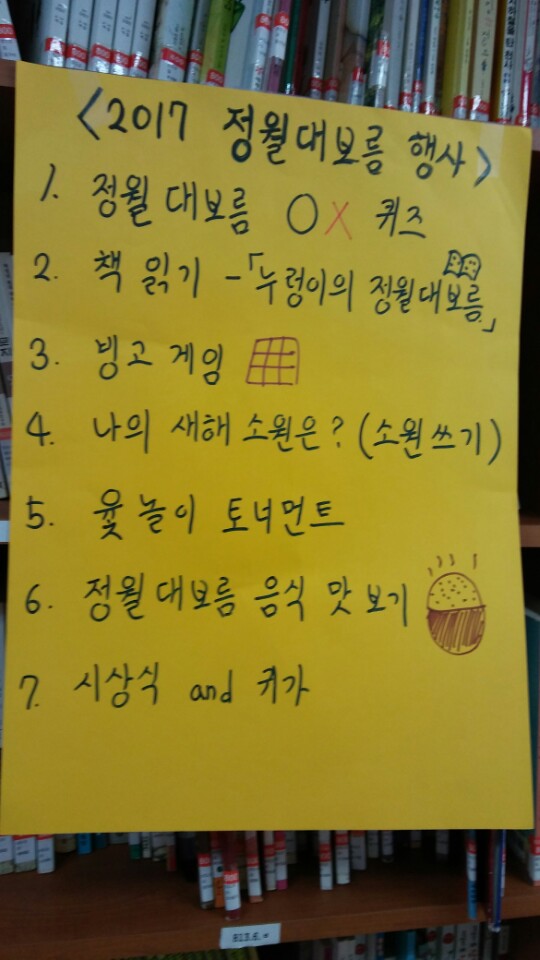 <2017 정월대보름 행사>
1. 정월 대보름 OX 퀴즈
2. 책 읽기 -「누렁이의 정월대보름」
3. 빙고 게임
4. 나의 새해 소원은? (소원쓰기)
5. 윷놀이 토너먼트
6. 정월 대보름 음식 맛보기
7. 시상식 and 귀가
813.8.ㅂ